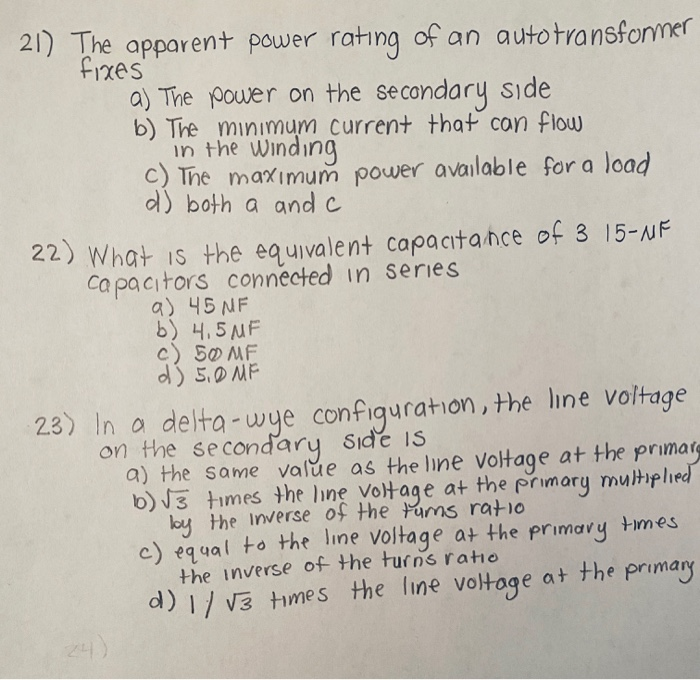 21) The apparent power rating of an autotransformer
fixes
a) The power on the secondary side
b) The minimum current that can flow
in the winding
c) The maximum power available for a load
d) both a and c
22) What is the equivalent capacitance of 3 15-μF
capacitors connected in series
a) 45 μF
b) 4.5 μF
c) 50 μF
d) 5.0 μF
23) In a delta-wye configuration, the line voltage
on the secondary side is
a) the same value as the line voltage at the primary
b) √3 times the line voltage at the primary multiplied
by the inverse of the turns ratio
c) equal to the line voltage at the primary times
the inverse of the turns ratio
d) 1/√3 times the line voltage at the primary
24)